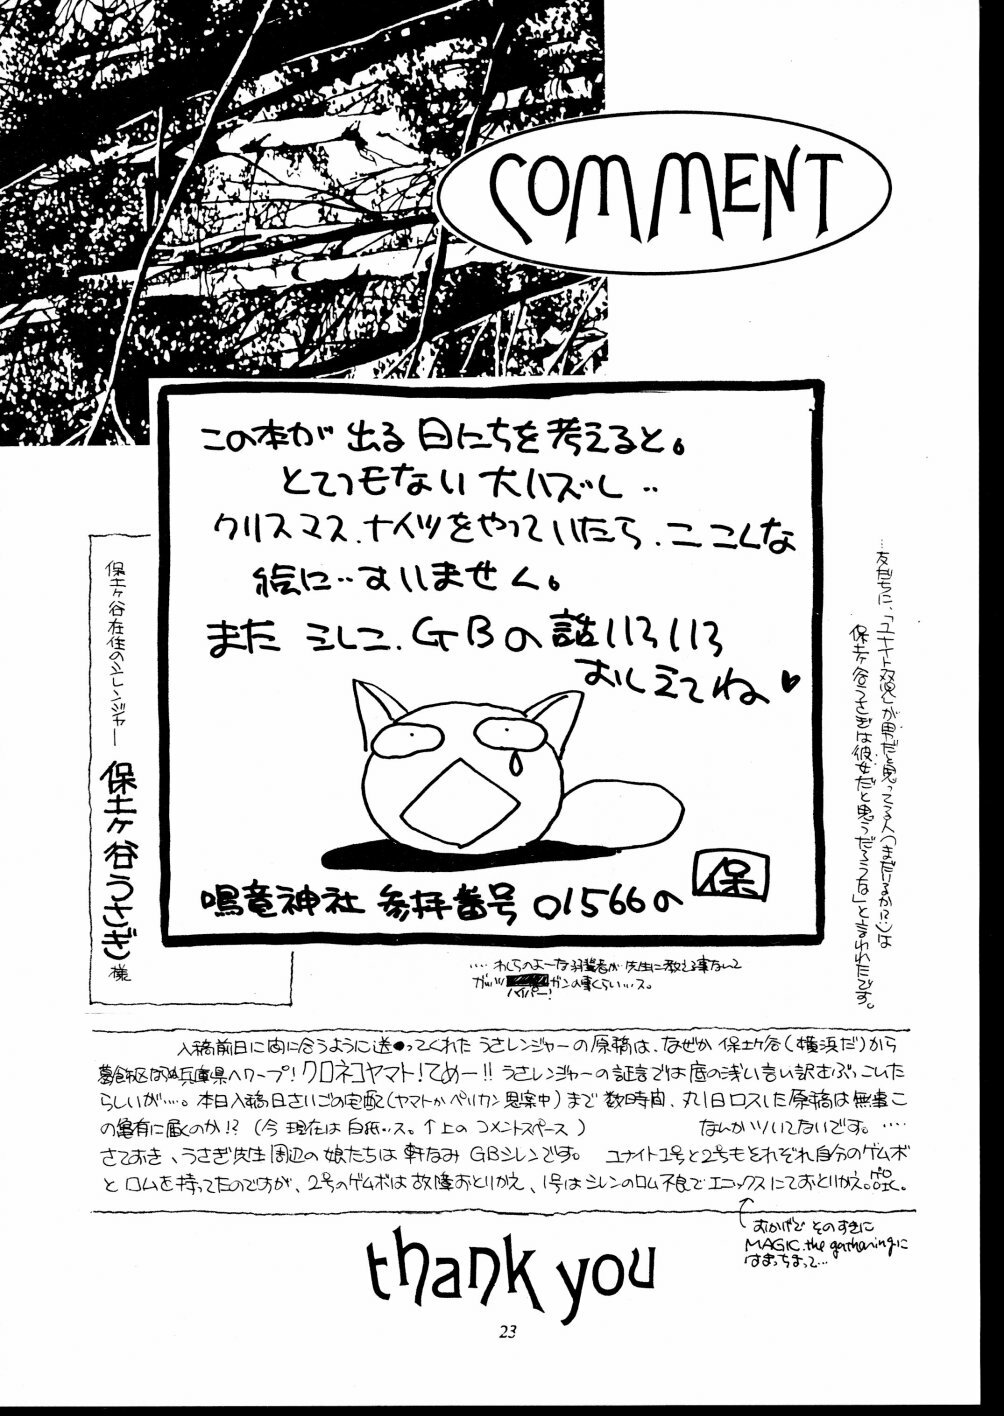 COMMENT
この本が 出る 日にちを 考えると。
とてつもない 大ハズし‥
クリスマス.ナイツをやっていたら、ここんな
絵に‥すいません。
また ミレニ.GBの 話いろいろ
おしえてね♥
鳴竜神社 参拝番号 01566の 保
保土ヶ谷在住のシレンジャー
保土ヶ谷うさぎ 様
…友だちに、「ユナイト双児」が男だと思ってる人(まだいるか!?)は
保土ヶ谷うさぎは彼女だと思うだろうな」と言われたです。
…わしらのよーな弱輩者が 先生に教える事なんて
ガッツ ガンの事くらい…ス。
ハイパー!
入稿前日に間に合うように送ってくれた うさレンジャーの原稿は、なぜか 保土ヶ谷(横浜だ)から
兵庫県へワープ! クロネコヤマト!てめー!! うさレンジャーの証言では底の浅い言い訳さぶっこいた
らしいが…。本日入稿日さいごの宅配(ヤマトかペリカン思案中)まで 数時間、丸1日ロスした原稿は無事こ
の亀有に届くのか!? (今 現在は 白紙‥ス。↑上の コメントスペース) なんかツいてないです。…
さておき、うさぎ先生周辺の娘たちは 軒なみ GBシレンです。 ユナイト1号と2号もそれぞれ自分のゲムボ
と ロムを持ってたのですが、2号のゲムボは故障おとりかえ、1号はシレンのロム不良でエニックスにておとりかえ。
おかげで そのすきに
MAGIC the gatheringに
はまっちまって…
thank you
23